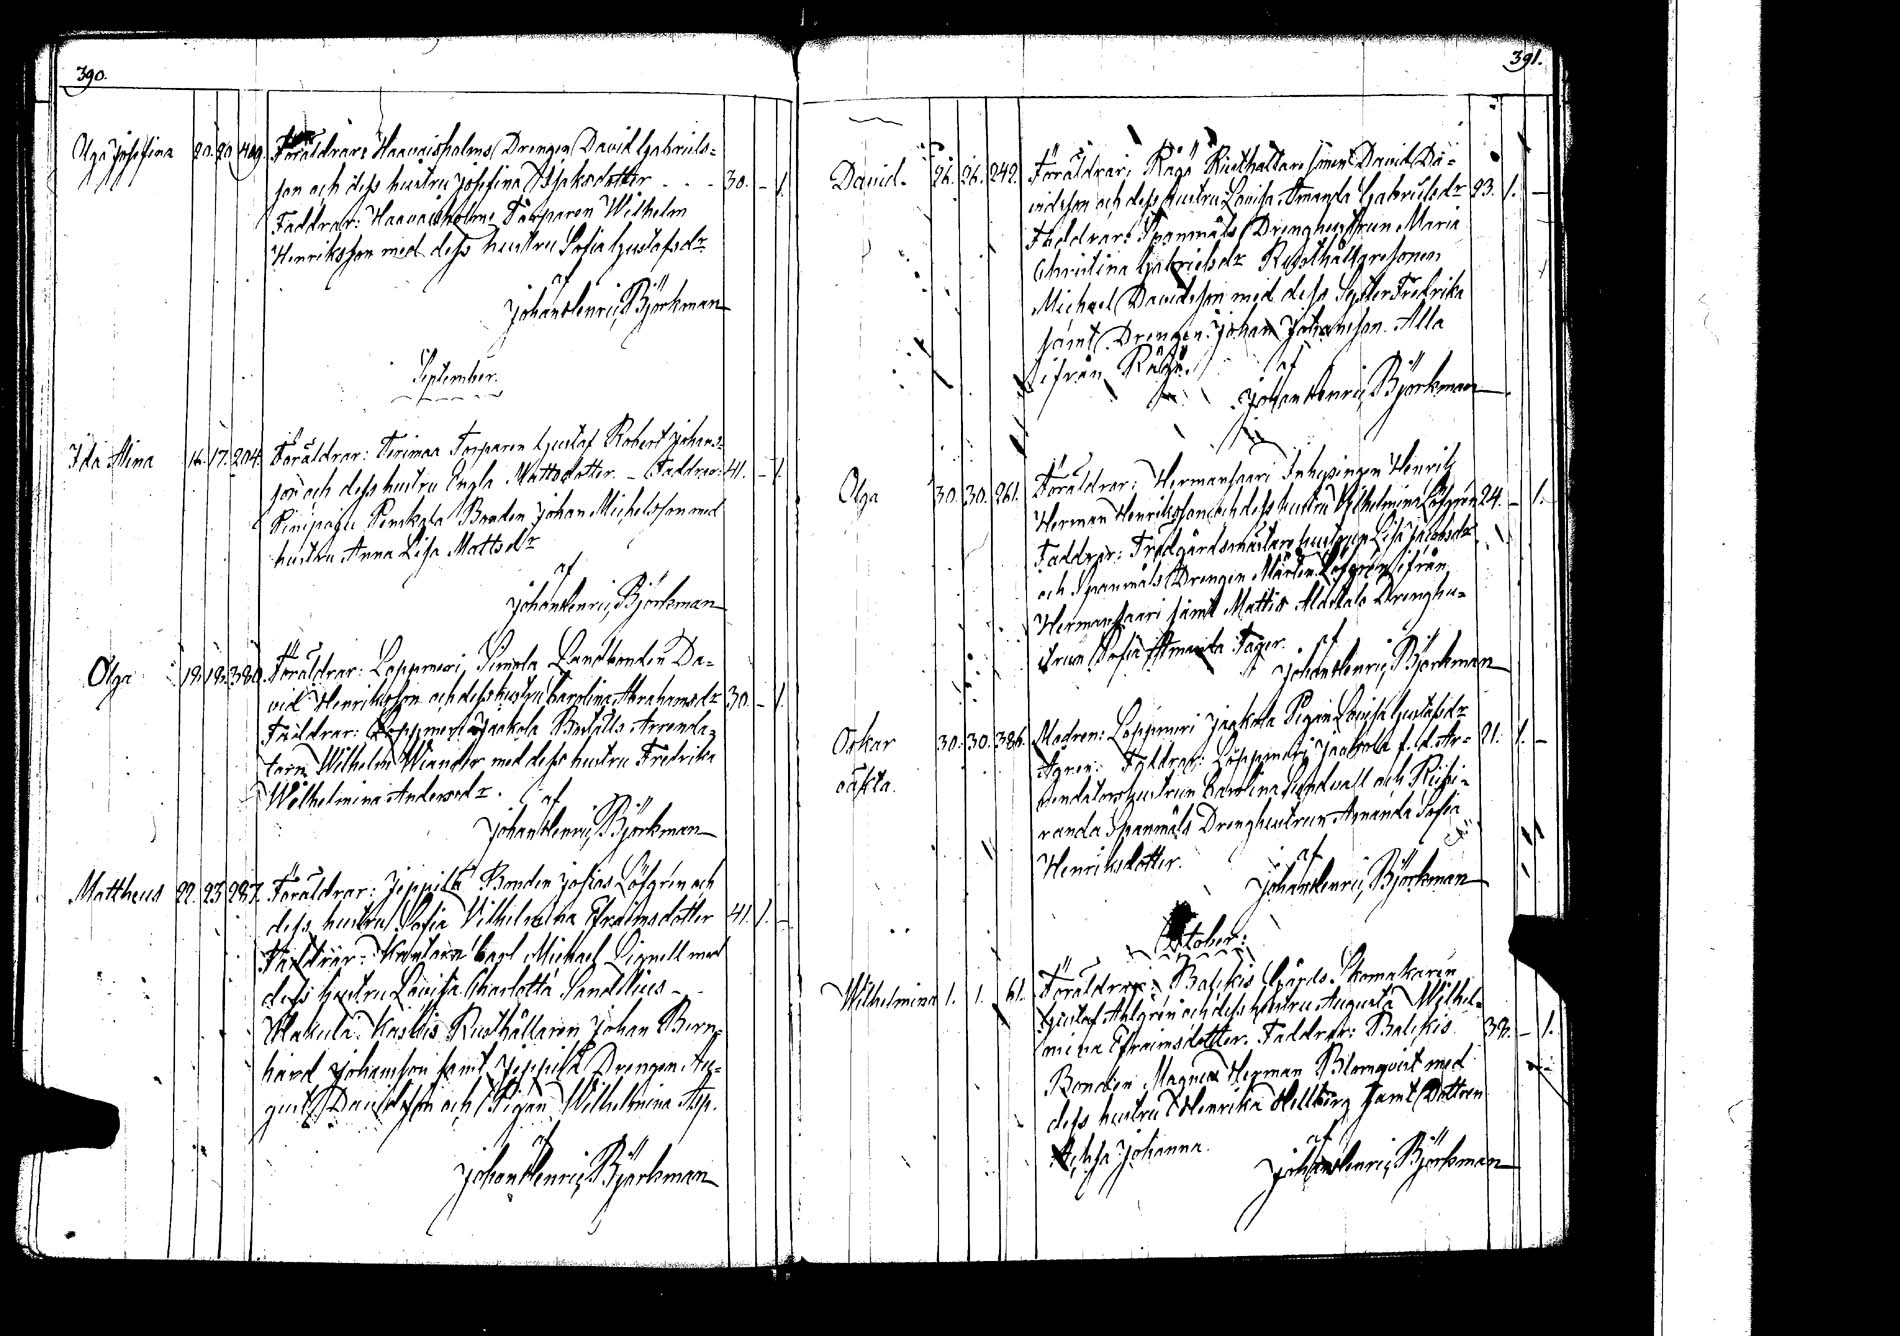 390.
Olga Josefina 20. 20. 409. Föräldrar: Haavaisholms Drengen David Gabriels=
son och dess hustru Josefina Isaksdotter - - - 30. - 1.
Faddrar: Haavaisholms Torparen Wilhelm
Henriksson med dess hustru Sofia Gustafsdr
af
Johan Henric Björkman
September.
Ida Alina 16. 17. 204. Föräldrar: Torparen Gustaf Robert Johans=
son och dess hustru Engla Mattsdotter. - Faddrar: 41. - 1.
Bonden Johan Michelsson med
hustru Anna Lisa Mattsdr
af
Johan Henric Björkman
Olga 18. 18. 380. Föräldrar: Loppmeri, Simola Landbonden Da=
vid Henriksson och dess hustru Carolina Abrahamsdr 30. - 1.
Faddrar: Loppmeri Jaakola Boställs Arrenda=
torn Wilhelm Wiander med dess hustru Fredrika
Wilhelmina Andersdr.
af
Johan Henric Björkman
Mattheus 22. 23. 287. Föräldrar: Jeppilä Bonden Josias Löfgrén och
dess hustru Sofia Vilhelmina Efraimsdotter 41. 1. -
Faddrar: Carl Michael Lignell med
dess hustru Lovisa Charlotta Sandelius -
Wakula Kaskis Rusthållaren Johan Bern=
hard Johansson samt Jeppilä Drengen Au=
gust Davidsson och Pigan Wilhelmina Asp.
af
Johan Henric Björkman
391.
David. 26. 26. 242. Föräldrar: Rågö Rusthållare sonen David Da=
vidsson och dess hustru Lovisa Amanda Gabrielsdr 23. 1. -
Faddrar: Spanmåls Drenghustrun Maria
Christina Gabrielsdr Rusthållaresonen
Michael Davidsson med dess Syster Fredrika
samt Drengen Johan Johansson. Alla
ifrån Rågö.
af
Johan Henric Björkman
Olga 30. 30. 261. Föräldrar: Hermansaari Inhysingen Henrik
Herman Henriksson och dess hustru Vilhelmina Löfgrén 24. - 1.
Faddrar: Trädgårdsmästare hustrun Lisa Jacobsdr
och Spanmåls Drengen Mårten Löfgrén ifrån
Hermansaari samt Mattis Alastalo Drenghu=
strun Sofia Amanda Fager.
af
Johan Henric Björkman
Oskar 30. 30. 386. Modren: Loppmeri Jaakola Pigan Lovisa Gustafsdr
oäkta. Ågren. Faddrar: Loppmeri Jaakola f. d. Ar= 21. 1. -
rendators hustrun Carolina Sundvall och
randa Spanmåls Drenghustrun Amanda Sofia
Henriksdotter.
af
Johan Henric Björkman
October:
Wilhelmina 1. 1. 61. Föräldrar: Balckis Gårds Skomakaren
Gustaf Ahlgrén och dess hustru Augusta Wilhel=
mina Efraimsdotter. Faddrar: Balckis 32. - 1.
Bonden Magnus Herman Blomqvist med
dess hustru Henrika Hellberg samt Dottren
Johanna.
af
Johan Henric Björkman